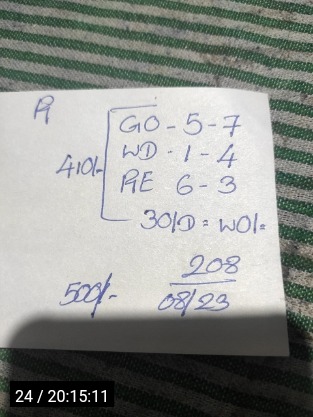 GO - 5 - 7
WD - 1 - 4
410/-
PE 6 - 3
30/D = WO/=
208
500/- 08/23
24 / 20:15:11